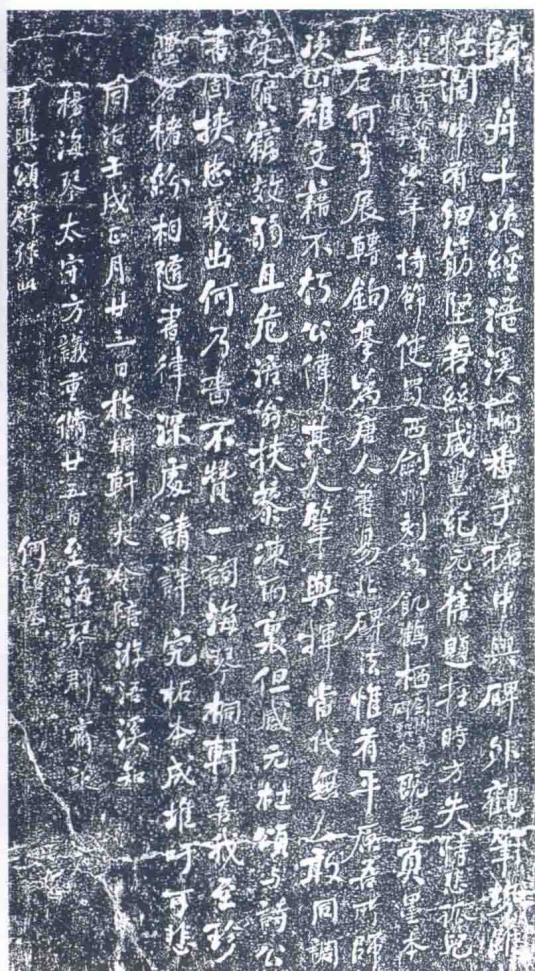 歸舟十次經浯溪兩番手拓中興碑外觀筆勢雖
壯闊中有細筋堅若絲咸豐紀元舊題在時方失恃悲孤兒
次年持節使蜀西劍州刻如飢鶴栖既無真墨本
上石何事展轉鉤摹爲唐人書易北碑法惟有平原吾所師
次山雄文藉不朽公偉其人筆與揮當代無人敢同調
宋賢竊效弱且危涪翁扶藜凍雨裏但感元杜頌与詩公
書固挾忠義出何乃嗇不贊一詞海琴桐軒喜我至珍
墨名楮紛相隨書律深處請詳究拓本成堆吁可悲
同治壬戌正月廿三日於桐軒大令陪游浯溪知
楊海琴太守方議重脩廿五日至海琴郡齋談
中興頌碑録此 何紹基